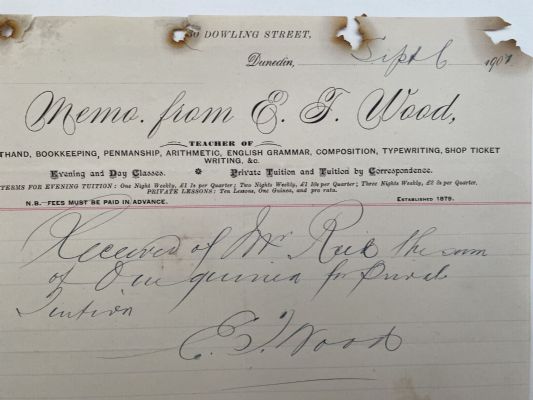 30 DOWLING STREET,
Dunedin, Sept 6 1901
Memo. from E. F. Wood,
TEACHER OF
THAND, BOOKKEEPING, PENMANSHIP, ARITHMETIC, ENGLISH GRAMMAR, COMPOSITION, TYPEWRITING, SHOP TICKET
WRITING, &c.
Evening and Day Classes. Private Tuition and Tuition by Correspondence.
TERMS FOR EVENING TUITION: One Night Weekly, £1 1s per Quarter; Two Nights Weekly, £1 10s per Quarter; Three Nights Weekly, £2 2s per Quarter.
PRIVATE LESSONS: Ten Lessons, One Guinea, and pro rata.
N.B.—FEES MUST BE PAID IN ADVANCE. ESTABLISHED 1879.
Received of Mr Reid the sum
of One guinea for private
Tuition
E. F. Wood